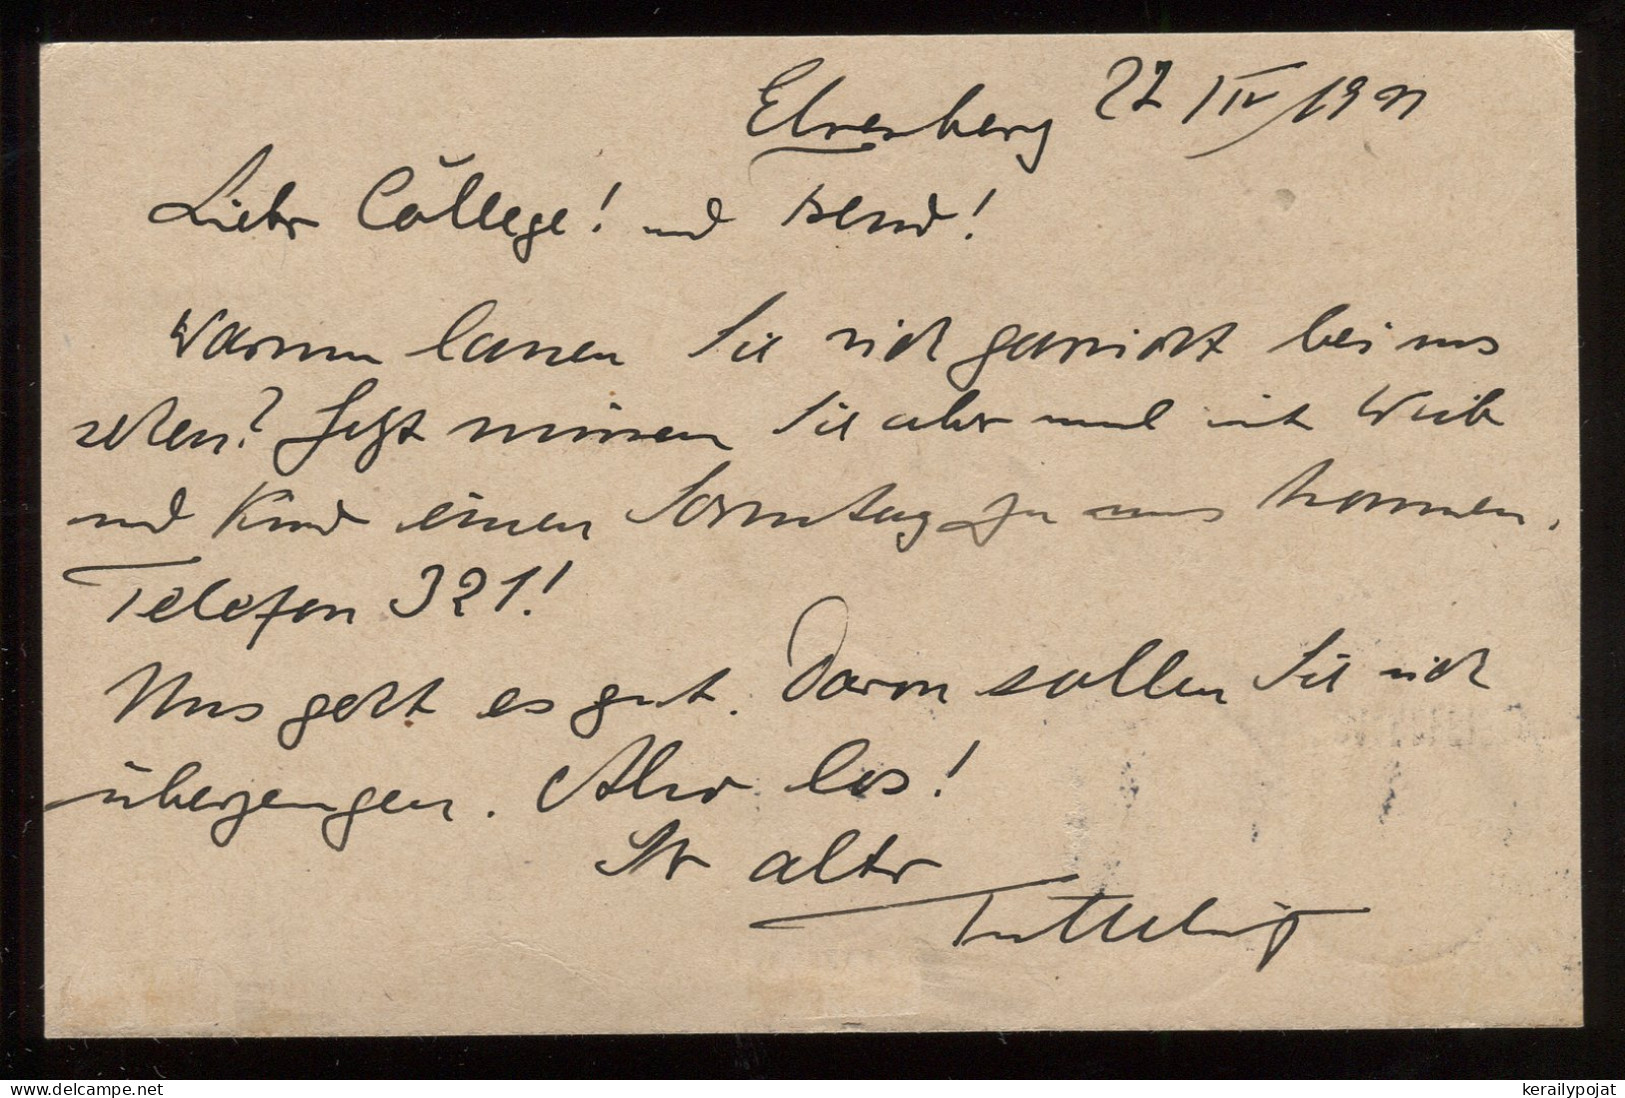 22 IV 19
Lieber College! und Freund!
Warum lassen Sie sich garnicht bei uns
sehen? Jetzt müssen Sie aber mal mit Weib
und Kind einen Sonntag zu uns kommen.
Telefon 321!
Uns geht es gut. Davon sollen Sie sich
überzeugen. Also los!
Ihr alter
www.delcampe.net
kerailypojat